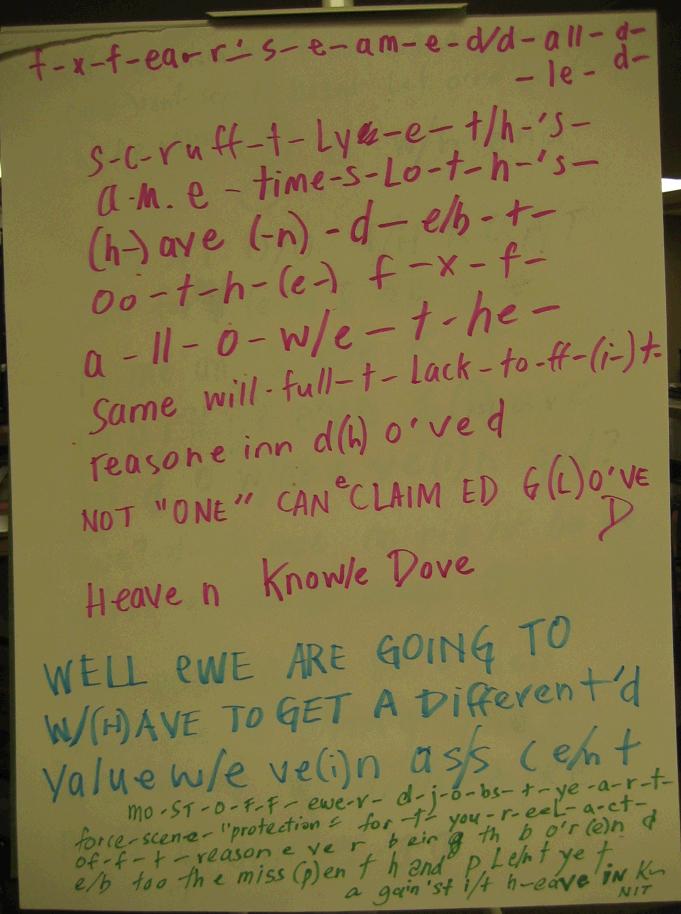 f-x-f-ear-r'-s-e-am-e-d/d-all-d-
-le-d-
s-c-ruff-t-Ly-e-t/h-'s-
a-m.e-time-s-Lo-t-h-'s-
(h-)ave (-n)-d-e/b-t-
oo-t-h-(e-) f-x-f-
a-ll-o-w/e-t-he-
same will-full-t-Lack-to-ff-(i-)t-
reasone inn d(h)o'ved
NOT "ONE" CANeCLAIM ED G(L)O'VE
D
Heaven Know/e Dove
WELL eWE ARE GOING TO
W/(H)AVE TO GET A Different'd
Value w/e ve(i)n as/s ce/nt
mo-ST-O-F-F-ewe-r-d-j-o-bs-t-ye-a-r-t-
force-scene-"protection = for-t-you-r-eel-a-ct-
of-f-t-reason e ve r being th b o'r(e)n d
e/b too the miss(p)en t h and p Le/nt ye t
a gain'st i/t h-eave in Kn
NIT